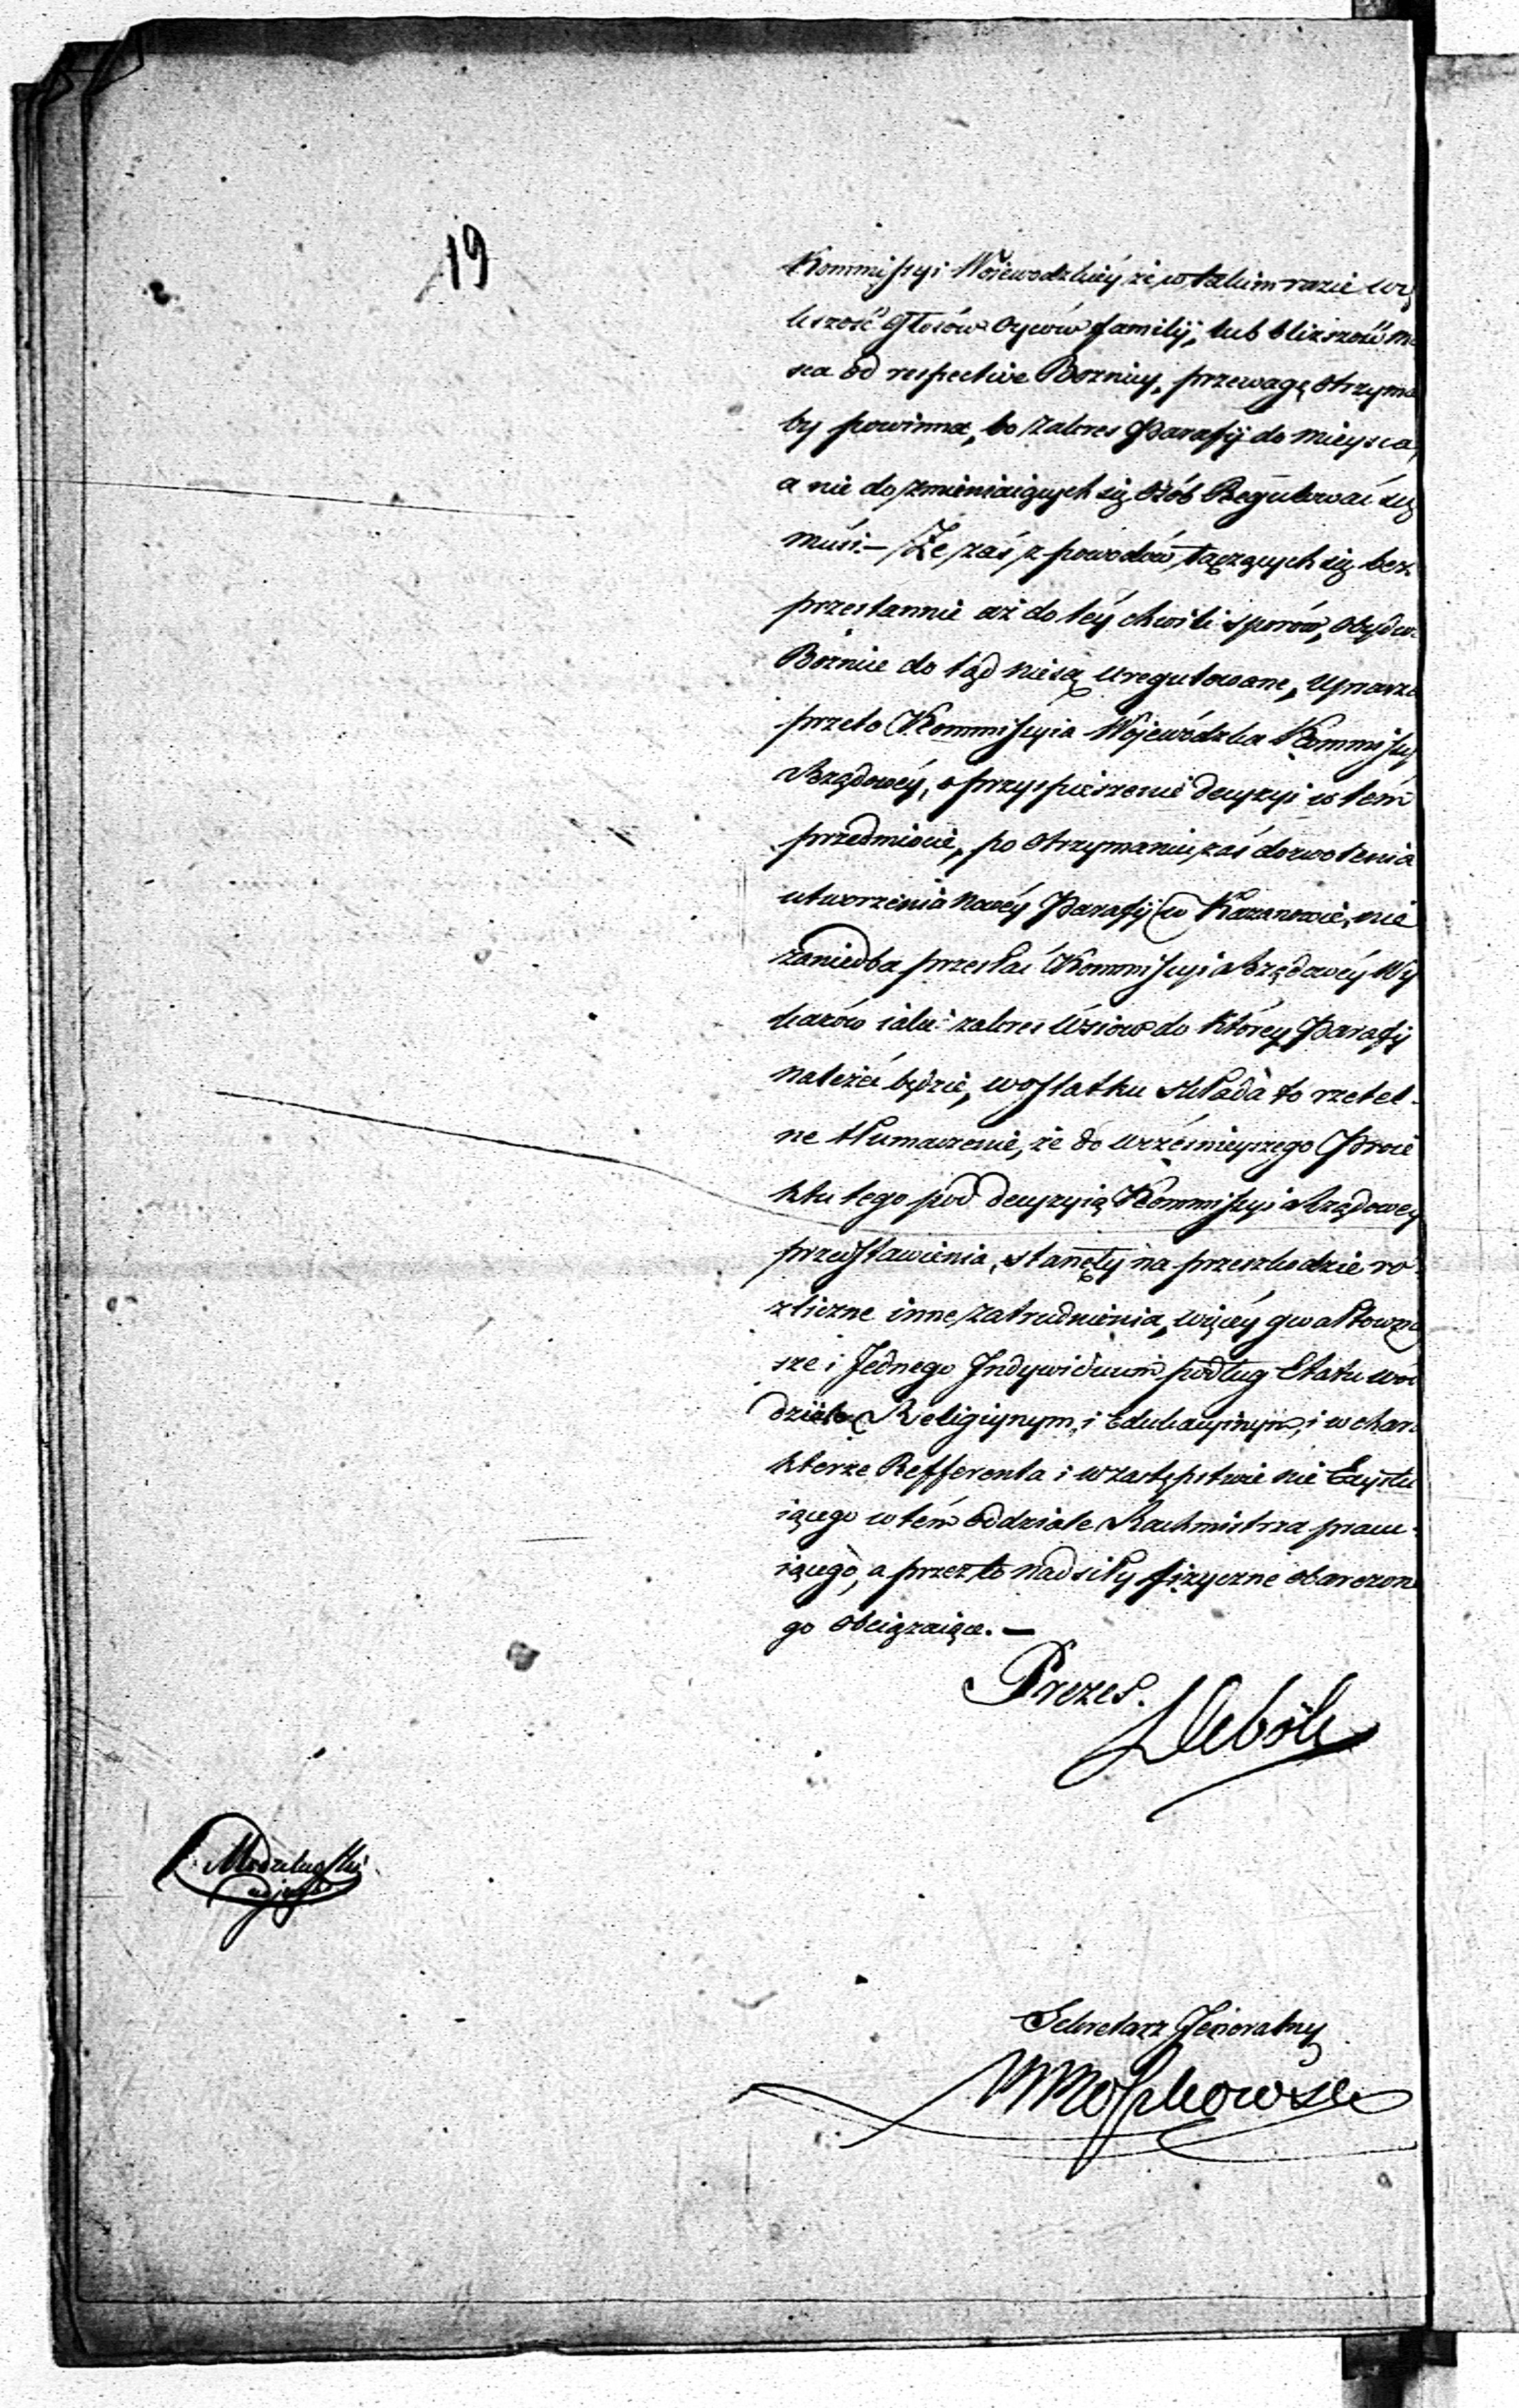 19
Kommissyi Wojewodzkiéy że w takim razie wię
kszość Głosów Oyców familij, lub bliższość mie
sca od respective Boznicy, przewagę otrzyma
by powinna, bo zakres Parafij do mieysca,
a nie do zmieniaiących się Osób Regulować się
musi. — Że zaś z powodów łączących się bez
przestannie aż do téy chwili sporów, Obydwa
Boznice do tąd nie są uregulowane, Uprasza
przeto Kommissyia Wojewódzka Kommissyi
Rządowéy, o przyspieszenie decyzyi w tem
przedmiocie, po otrzymaniu zaś dozwolenia
utworzenia Nowéy Parafij w Kazanowie, nie
zaniedba przesłać Kommissyi Rządowéy Wy
kazów iaki zakres Wsiow do któréy Parafij
należéć będzie, w ostatku składa to rzetel-
ne tłumaczenie, że do wcześnieyszego Proie
ktu tego pod decyzyią Kommissyi Rządowey
przedstawienia, stanęły na przeszkodzie ro-
zliczne inne zatrudnienia, więcéy gwałtowniey
sze i Jednego Indywiduum podług Etatu w od
dziale Religiynym, i Edukacyinym, i w chara
kterze Refferenta i w zastępstwie nie Exystu
iącego w tém oddziale Rachmistrza pracu-
iącego, a przez to nad siły fizyczne obarczone
go obciążaiące. —
Prezes.
Deboli
Modzelewski
Sekretarz Jeneralny